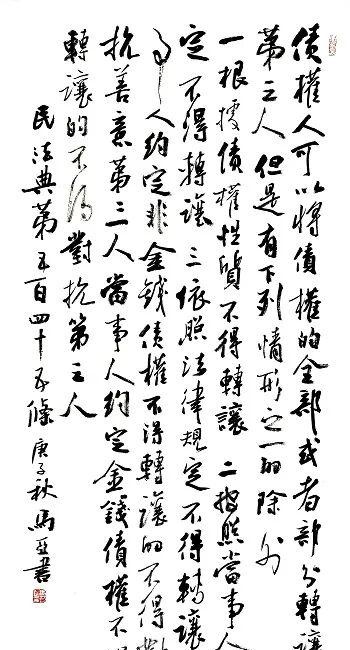 债權人可以将债權的全部或者部分轉讓
第三人但是有下列情形之一的除外
一根據债權性質不得轉讓二按照當事人
定不得轉讓三依照法律規定不得轉讓
當事人約定非金錢债權不得轉讓的不得對
抗善意第三人當事人約定金錢债權不
轉讓的不得對抗第三人
民法典第五百四十五條庚子秋馬亞書